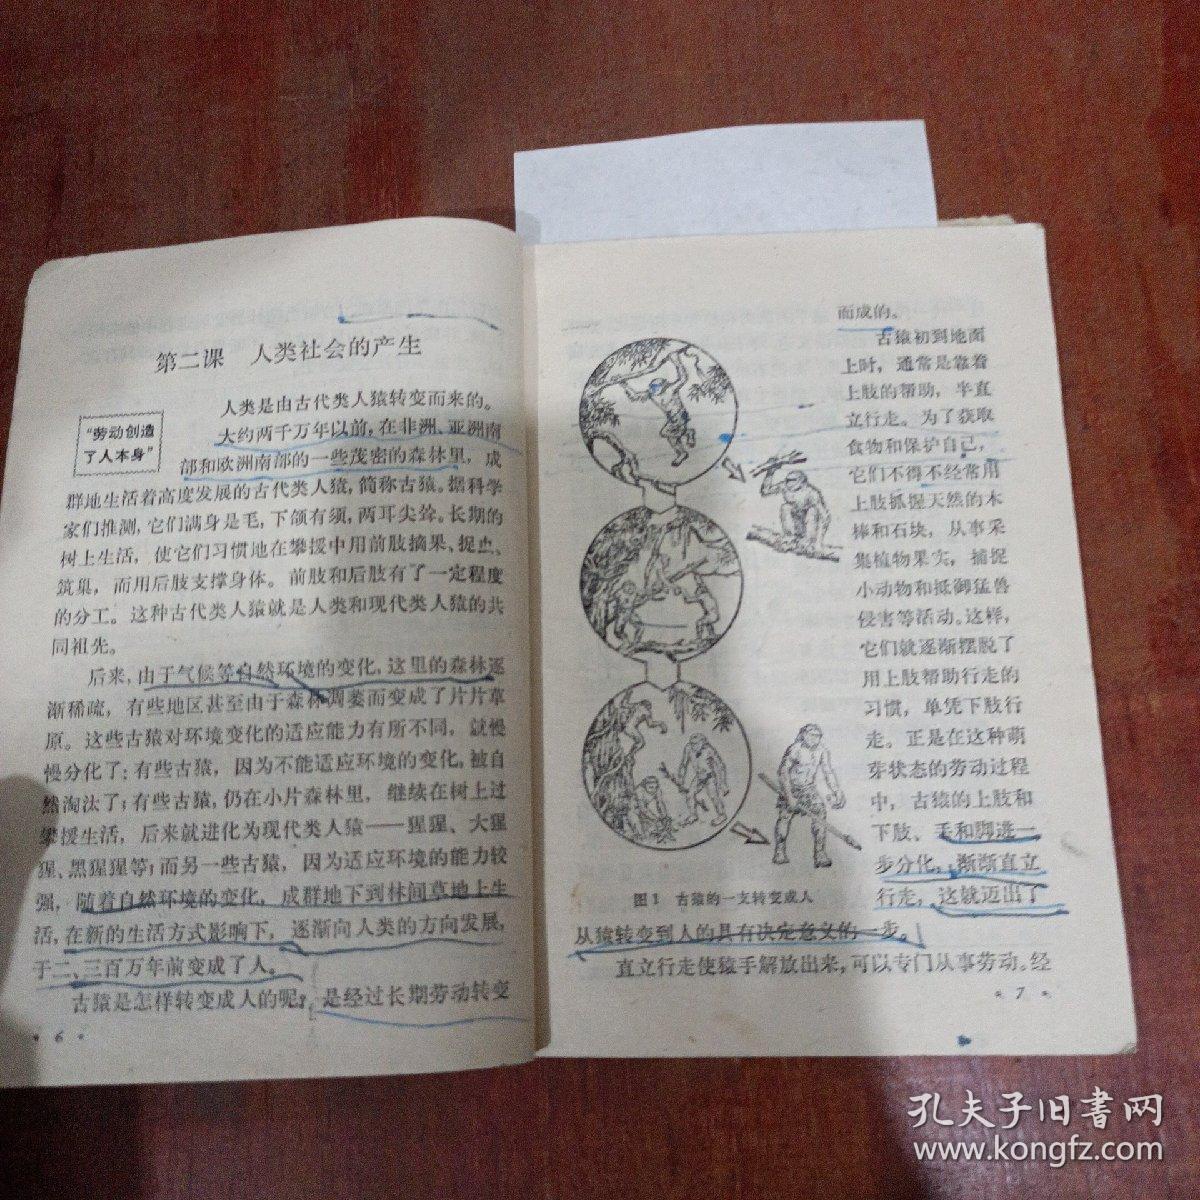 第二课 人类社会的产生
“劳动创造
了人本身”
人类是由古代类人猿转变而来的。
大约两千万年以前，在非洲、亚洲南
部和欧洲南部的一些茂密的森林里，成
群地生活着高度发展的古代类人猿，简称古猿。据科学
家们推测，它们满身是毛，下颌有须，两耳尖耸。长期的
树上生活，使它们习惯地在攀援中用前肢摘果、捉虫、
筑巢，而用后肢支撑身体。前肢和后肢有了一定程度
的分工。这种古代类人猿就是人类和现代类人猿的共
同祖先。
后来，由于气候等自然环境的变化，这里的森林逐
渐稀疏，有些地区甚至由于森林凋萎而变成了片片草
原。这些古猿对环境变化的适应能力有所不同，就慢
慢分化了：有些古猿，因为不能适应环境的变化，被自
然淘汰了；有些古猿，仍在小片森林里，继续在树上过
攀援生活，后来就进化为现代类人猿——猩猩、大猩
猩、黑猩猩等；而另一些古猿，因为适应环境的能力较
强，随着自然环境的变化，成群地下到林间草地上生
活，在新的生活方式影响下，逐渐向人类的方向发展，
于二、三百万年前变成了人。
古猿是怎样转变成人的呢？是经过长期劳动转变
· 6 ·
而成的。
古猿初到地面
上时，通常是靠着
上肢的帮助，半直
立行走。为了获取
食物和保护自己，
它们不得不经常用
上肢抓握天然的木
棒和石块，从事采
集植物果实，捕捉
小动物和抵御猛兽
侵害等活动。这样，
它们就逐渐摆脱了
用上肢帮助行走的
习惯，单凭下肢行
走。正是在这种萌
芽状态的劳动过程
中，古猿的上肢和
下肢、手和脚进一
步分化，渐渐直立
行走，这就迈出了
图1 古猿的一支转变成人
从猿转变到人的具有决定意义的一步。
直立行走使猿手解放出来，可以专门从事劳动。经
· 7 ·
孔夫子旧书网
www.kongfz.com